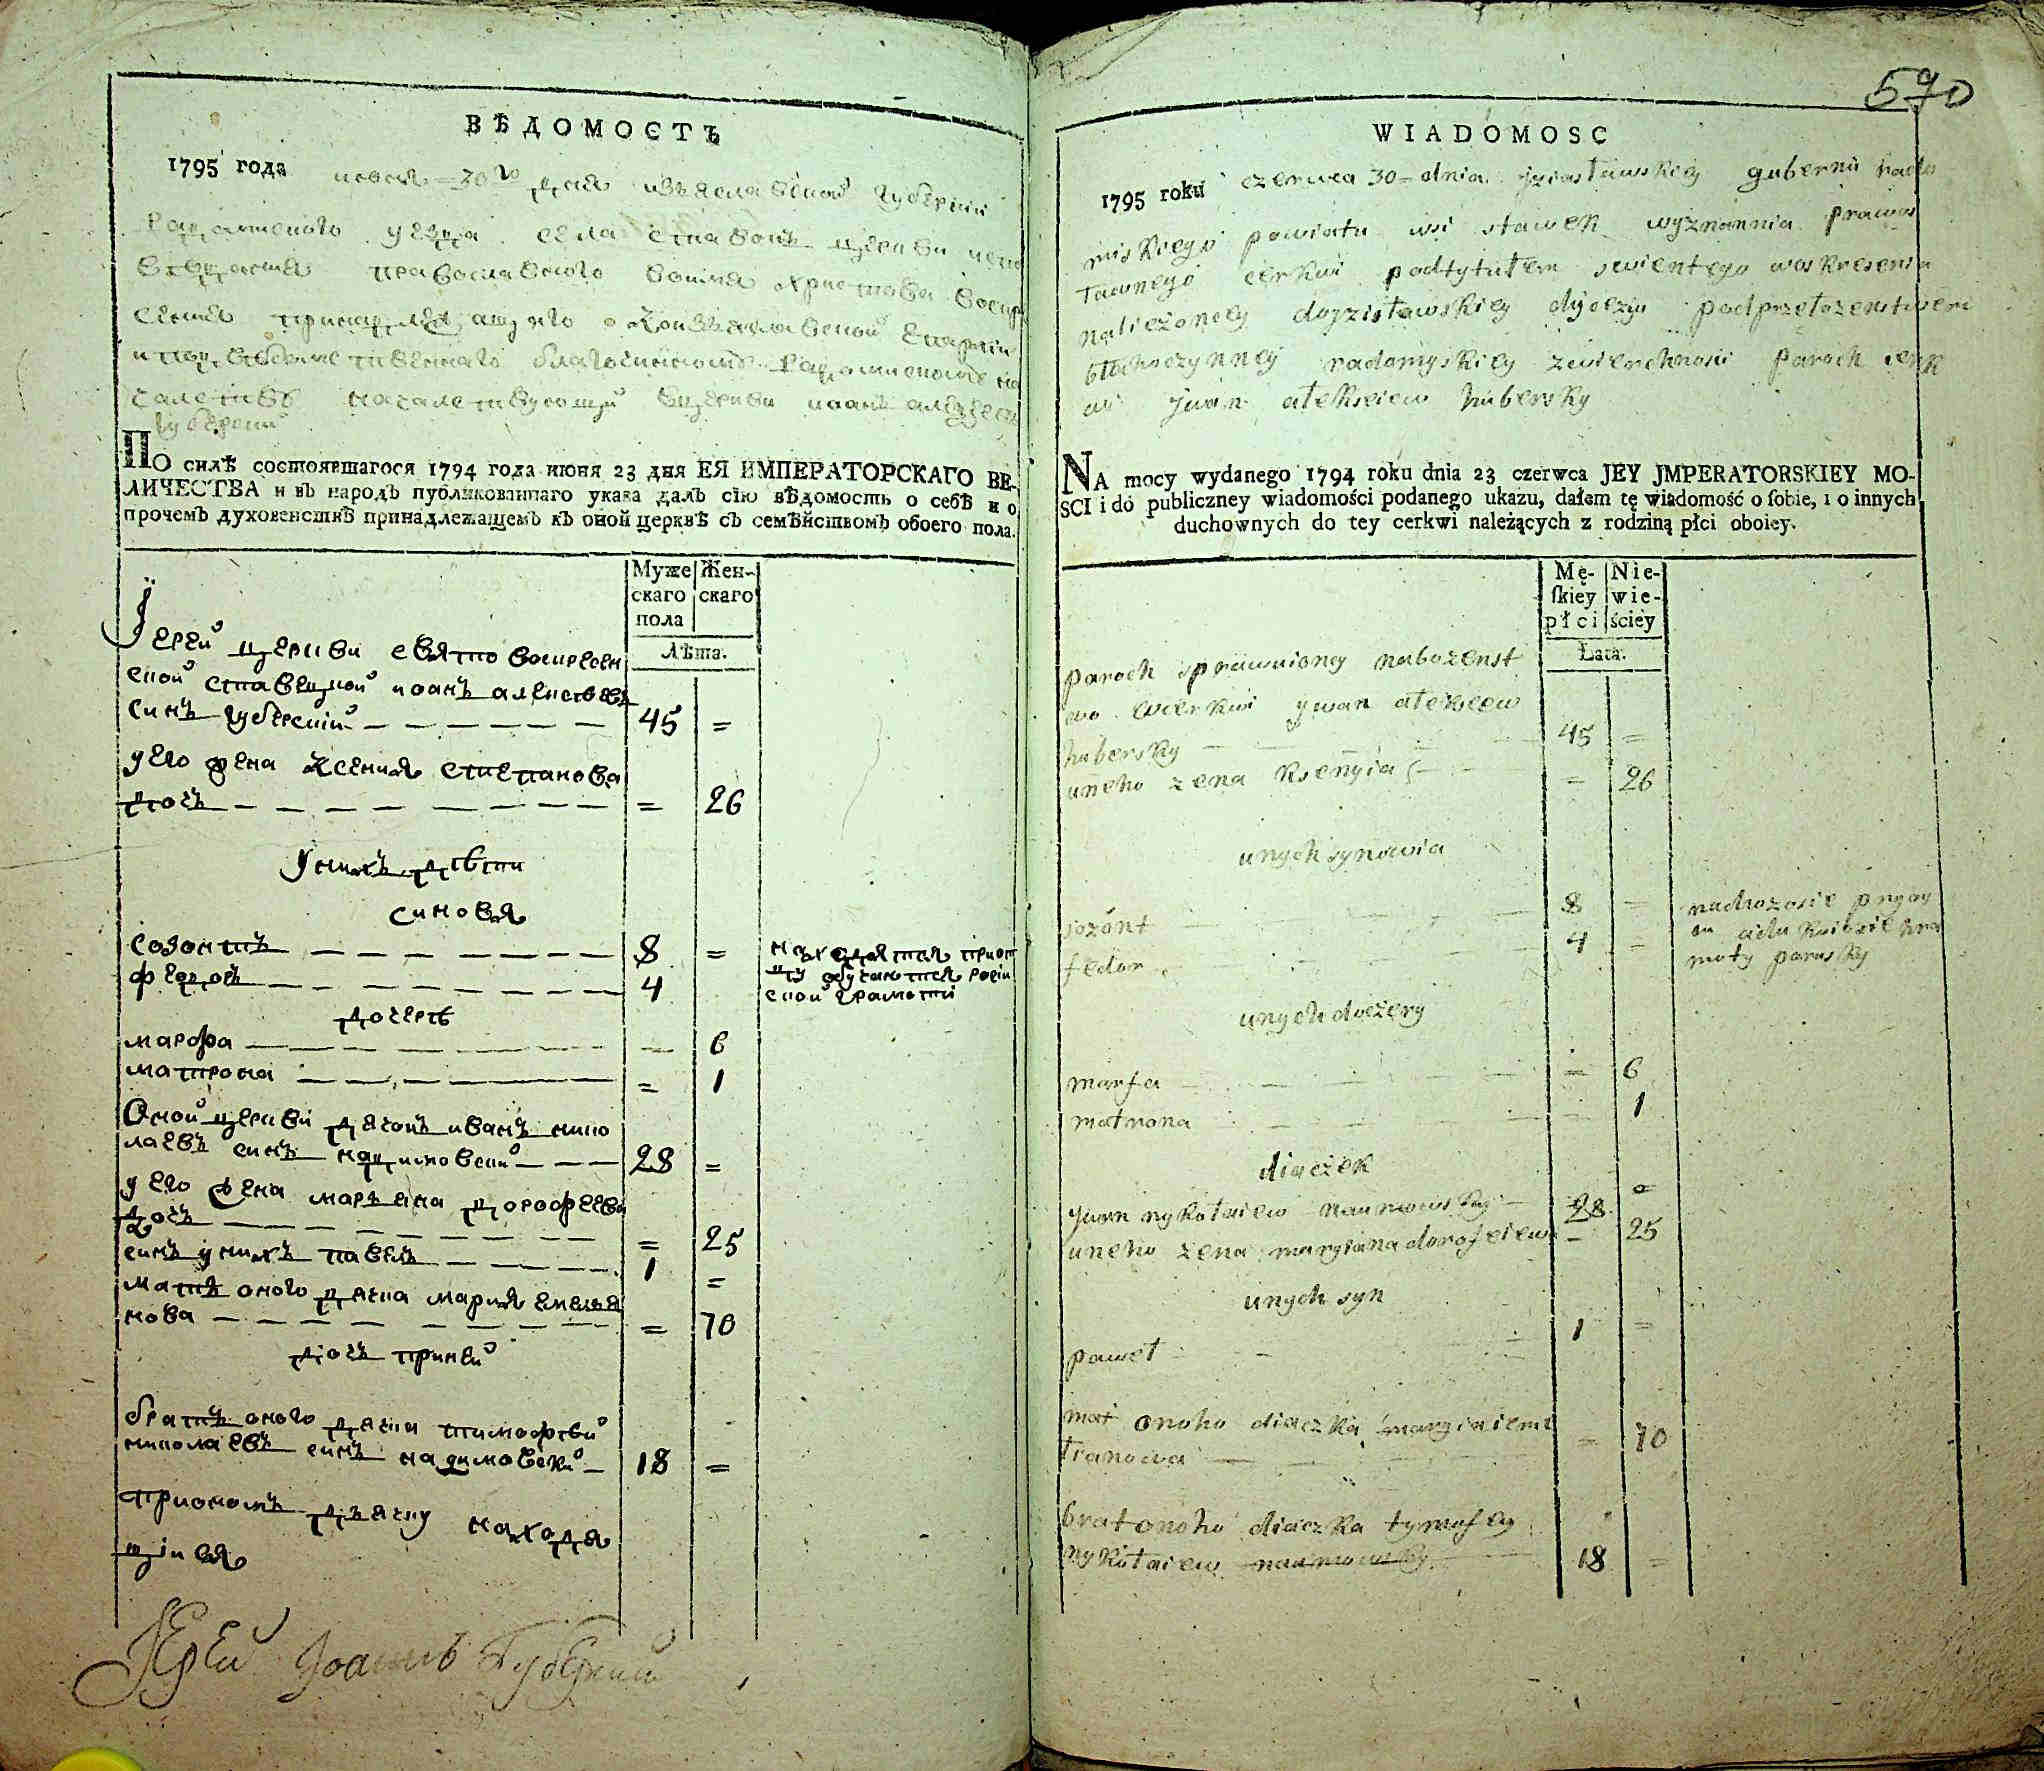 ВѢДОМОСТЬ
1795 года июня 30го дня изяславской губерніи
радомского уезда села ставокъ церкви
православного воимя христова воскр
сения принадлежащого кои изяславской епархіи
благочинномъ радомискомъ
началствующій въ церкви иоанъ алексеевъ
губерскій
ПО силѣ состоявшагося 1794 года июня 23 дня ЕЯ ИМПЕРАТОРСКАГО ВЕ-
ЛИЧЕСТВА и въ народъ публикованнаго указа далъ сію вѣдомость о себѣ и о
прочемъ духовенствѣ принадлежащемъ къ оной церквѣ съ семѣйствомъ обоего пола.
Муже Жен-
скаго скаго
пола
Лѣта.
Іерей церкви свято воскресен
ской ставецкой иоанъ алексѣевъ
синъ губерскій 45 =
у его жена ксения степанова
дочъ = 26
У нихъ дѣти
синовя
созонтъ 8 = находятся приот
федоръ 4 цу обучаются росій
ской грамоти
дочерѣ
марфа = 6
матрона = 1
Оной церкви дячокъ иванъ нико
лаевъ синъ наумовский 28 =
у его жена маръяна дорофеева
дочъ = 25
синъ у нихъ павелъ 1 =
матъ оного дячка мария емелия
нова = 70
дочъ
братъ оного дячка тимофѣй
николаевъ синъ наумовский 18 =
при ономъ дъячку находя
щійся
Іерей Іоаннъ Губерский
570
WIADOMOSC
1795 roku czerwca 30 = dnia iziasławskiey gubernii rado
miskiego powiatu wsi stawek wyznannia prawos
ławnego cerkwi podtytułem swientego woskresenia
należoncy doyzisławskiey dyoezyi podprzełozenstwem
błahoczynney radomyskiey zwierchnosci paroch cerk
wi jwan ałeksiew huberšky
NA mocy wydanego 1794 roku dnia 23 czerwca JEY JMPERATORSKIEY MO-
SCI i do publiczney wiadomości podanego ukazu, dałem tę wiadomość o sobie, i o innych
duchownych do tey cerkwi należących z rodziną płci oboiey.
Mę- Nie-
skiey wie-
płci ściey
Lata.
paroch sprawuioncy nabożenst
wo cierkwi ywan ałexiew
hubersky 45 =
uneho zena ksenyia = 26
unych synowia
sozont 8 = nachozosie pryoy
fedor 4 =
moty parusky
unych doczery
marfa = 6
matrona 1
diaczek
ywan nykołaiew naumowsky 28 =
uneho zena maryana dorofeiewa = 25
unych syn
paweł 1 =
mat onoho diaczka maryia iemi
lianowa = 70
brat onoho diaczka tymofey
nykołaiew naumowsky 18 =